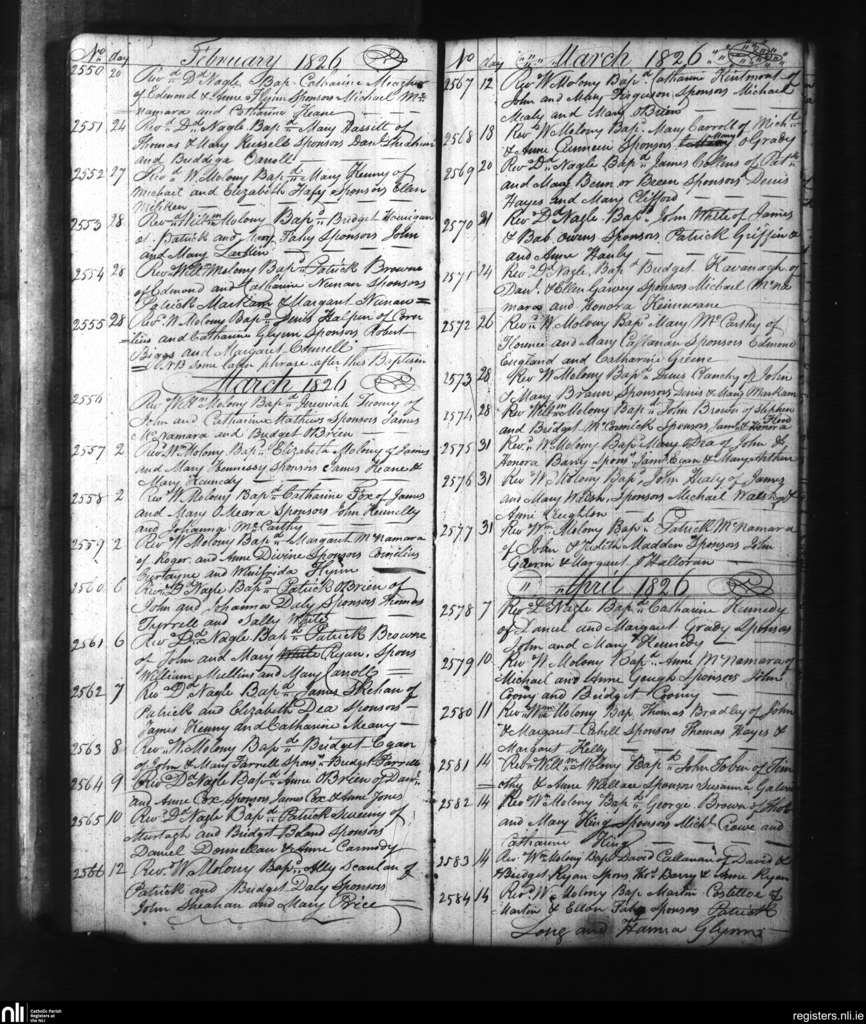 No day February 1826
2550 20 Revd Dd Nagle Bap. Catharine Meagher
of Edmond & Anne Flynn Sponsors Michael Mc
Namara and Catharine Keane
2551 24 Revd Dd Nagle Bapd Mary Hassitt of
Thomas & Mary Russell Sponsors Danl Sheahan
and Buddga Carroll
2552 27 Revd W Molony Bapd Mary Kenny of
Michael and Elizabeth Sponsors Ellen
2553 28 Revd Willm Molony Bapd Bridget
of Patrick and Mary Fahy Sponsors John
and Mary Larkin
2554 28 Revd Willm Molony Bapd Patrick Browne
of Edmond and Catharine Nunan Sponsors
Patrick & Margaret Nunan
2555 28 Revd W Molony Bapd Denis Halpin of Corn
elius and Catharine Glynn Sponsors Robert
Biggs and Margaret
NB Some after this Baptism
March 1826
2556 Revd Willm Molony Bapd Jeremiah Twomy of
John and Catharine Mathews Sponsors James
McNamara and Budget OBrien
2557 2 Revd Wm Molony Bapd Elizabeth Molony of James
and Mary Hennessy Sponsors James Keane &
Mary Kennedy
2558 2 Revd W Molony Bapd Catharine Fox of James
and Mary OMeara Sponsors John Kennelly
and Johanna McCarthy
2559 2 Revd W Molony Bapd Margaret McNamara
of Roger and Anne Divine Sponsors Cornelius
and Whinfrida Flynn
2560 6 Revd Dd Nagle Bapd Patrick OBrien of
John and Johanna Daly Sponsors Thomas
Tyrrell and Sally White
2561 6 Revd Dd Nagle Bapd Patrick Browne
of John and Mary White Ryan, Spons
William Mullins and Mary Carroll
2562 7 Revd Dd Nagle Bapd James Shehan of
Patrick and Elizabeth Dea Sponsors
James Kenny and Catharine Meany
2563 8 Revd W Molony Bapd Budget Egan
of John & Mary Farrell Spons Budget Farrell
2564 9 Revd Dd Nagle Bapd Anne OBrien of Danl
and Anne Cox Sponsors James Cox & Anne Jones
2565 10 Revd Dd Nagle Bapd Patrick Sweeny of
Murtagh and Bridget Boland Sponsors
Daniel Donnellan & Anne Carmody
2566 12 Revd W Molony Bapd Ally Scanlan of
Patrick and Budget Daly Sponsors
John Sheahan and Mary Price
No day March 1826
2567 12 Revd W Molony Bapd Catharine of
John and Mary Ferguson Sponsors Michael
Mealy and Mary OBrien
2568 18 Revd W Molony Bap. Mary Carroll of Michl
& Anne Sponsors Mary OGrady
2569 20 Revd Dd Nagle Bapd James Collins of Patk
and Mary Beun or Breen Sponsors Denis
Hayes and Mary Clifford
2570 21 Revd Dd Nagle Bapd John White of James
& Bab. Owens Sponsors Patrick Griffin &
and Anne Hanly
1571 24 Revd Dd Nagle Bapd Budget Kavanagh of
Danl & Ellen Garvy Sponsors Michael McNa
mara and Honora
2572 26 Revd W Molony Bap Mary McCarthy of
Florence and Mary Sponsors Edmond
England and Catharine Greene
2573 28 Revd W Molony Bapd Denis Clanchy of John
& Mary Braun Sponsors Denis & Mary Markam
1574 28 Revd Willm Molony Bapd John Brown of Stephen
and Bridget McCormick Sponsors James & Honora
2575 31 Revd W Molony Bap Mary Dea of John &
Honora Barry Spons James Egan & Mary Arthur
2576 31 Revd W Molony Bapd John Healy of James
and Mary Welsh, Sponsors Michael Walsh &
Anne Creighton
2577 31 Revd Wm Molony Bapd Patrick McNamara
of John & Judith Madden Sponsors John
Gavin & Margaret OHalloran
April 1826
2578 7 Revd D Nagle Bapd Catharine Kennedy
of Daniel and Margaret Grady Sponsors
John and Mary Kennedy
2579 10 Revd W Molony Bapd Anne McNamara of
Michael and Anne Gough Sponsors John
Coony and Bridget Coony
2580 11 Revd Wm Molony Bap Thomas Bradley of John
& Margaret Cahill Sponsors Thomas Hayes &
Margaret Kelly
2581 14 Revd Willm Molony Bapd John Tobin of Tim
othy & Anne Wallace Sponsors Susanna
2582 14 Revd Wm Molony Bapd George Brown of
and Mary King Sponsors Michl Crowe and
Catharine King
2583 14 Revd Wm Molony Bapd David Callanan of David &
Bridget Ryan Spons Thos Berry & Anne Ryan
2584 14 Revd W Molony Bap Martin Costelloe of
Martin & Ellen Fahy Sponsors Patrick
Long and Hanna Glynn
nli Catholic Parish Registers at the NLI
registers.nli.ie